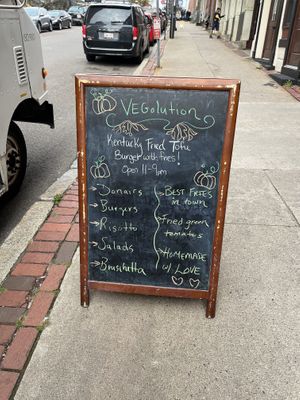 VEGolution
Kentucky Fried Tofu
Burger with fries!
Open 11-9pm
→ Donairs
→ Burgers
→ Risotto
→ Salads
→ Bruschetta
→ BEST FRIES
in town
→ Fried green
tomatoes
→ HOMEMADE
w/ LOVE